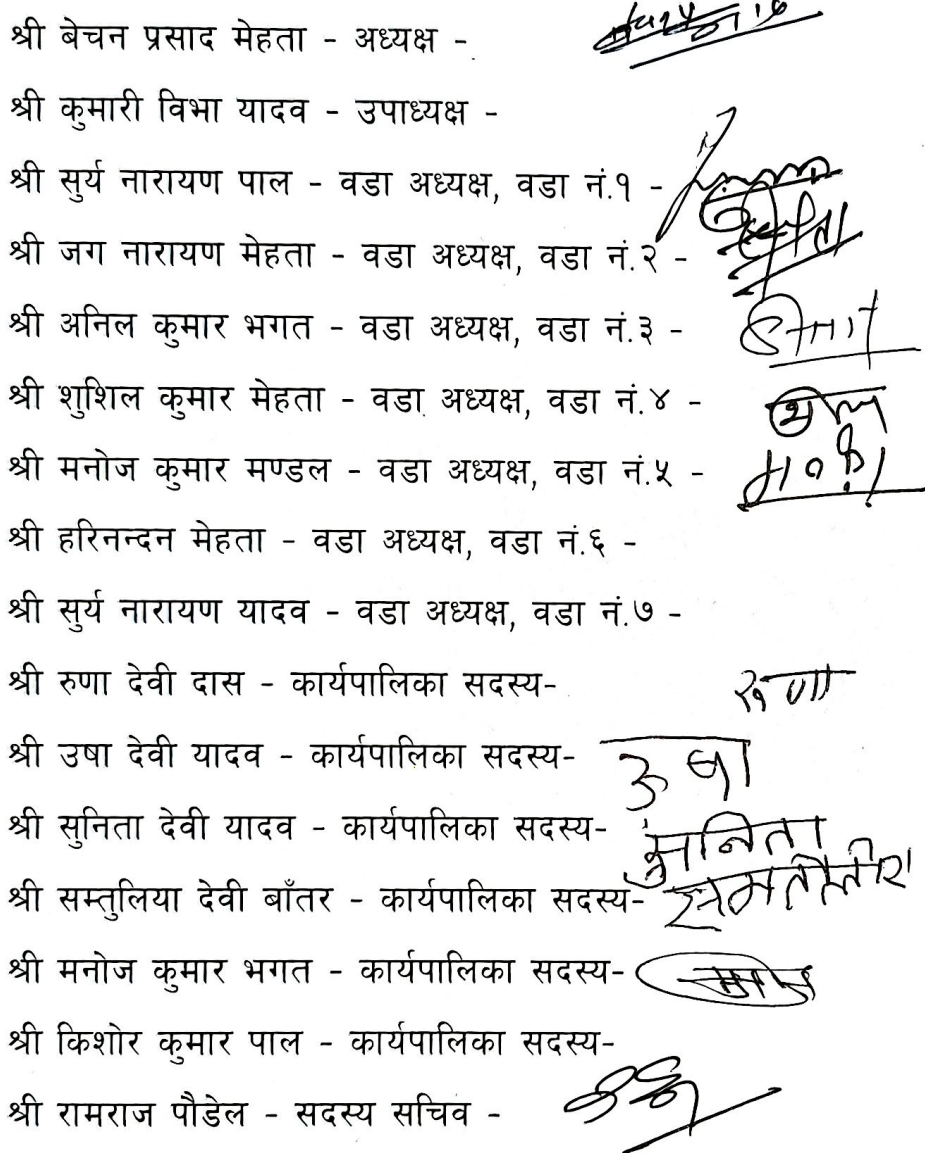 श्री बेचन प्रसाद मेहता - अध्यक्ष -
श्री कुमारी विभा यादव - उपाध्यक्ष -
श्री सुर्य नारायण पाल - वडा अध्यक्ष, वडा नं.१ -
श्री जग नारायण मेहता - वडा अध्यक्ष, वडा नं.२ -
श्री अनिल कुमार भगत - वडा अध्यक्ष, वडा नं.३ -
श्री शुशिल कुमार मेहता - वडा अध्यक्ष, वडा नं.४ -
श्री मनोज कुमार मण्डल - वडा अध्यक्ष, वडा नं.५ -
श्री हरिनन्दन मेहता - वडा अध्यक्ष, वडा नं.६ -
श्री सुर्य नारायण यादव - वडा अध्यक्ष, वडा नं.७ -
श्री रुणा देवी दास - कार्यपालिका सदस्य- रुणा
श्री उषा देवी यादव - कार्यपालिका सदस्य- उषा
श्री सुनिता देवी यादव - कार्यपालिका सदस्य- सुनिता
श्री सम्तुलिया देवी बाँतर - कार्यपालिका सदस्य-
श्री मनोज कुमार भगत - कार्यपालिका सदस्य-
श्री किशोर कुमार पाल - कार्यपालिका सदस्य-
श्री रामराज पौडेल - सदस्य सचिव -